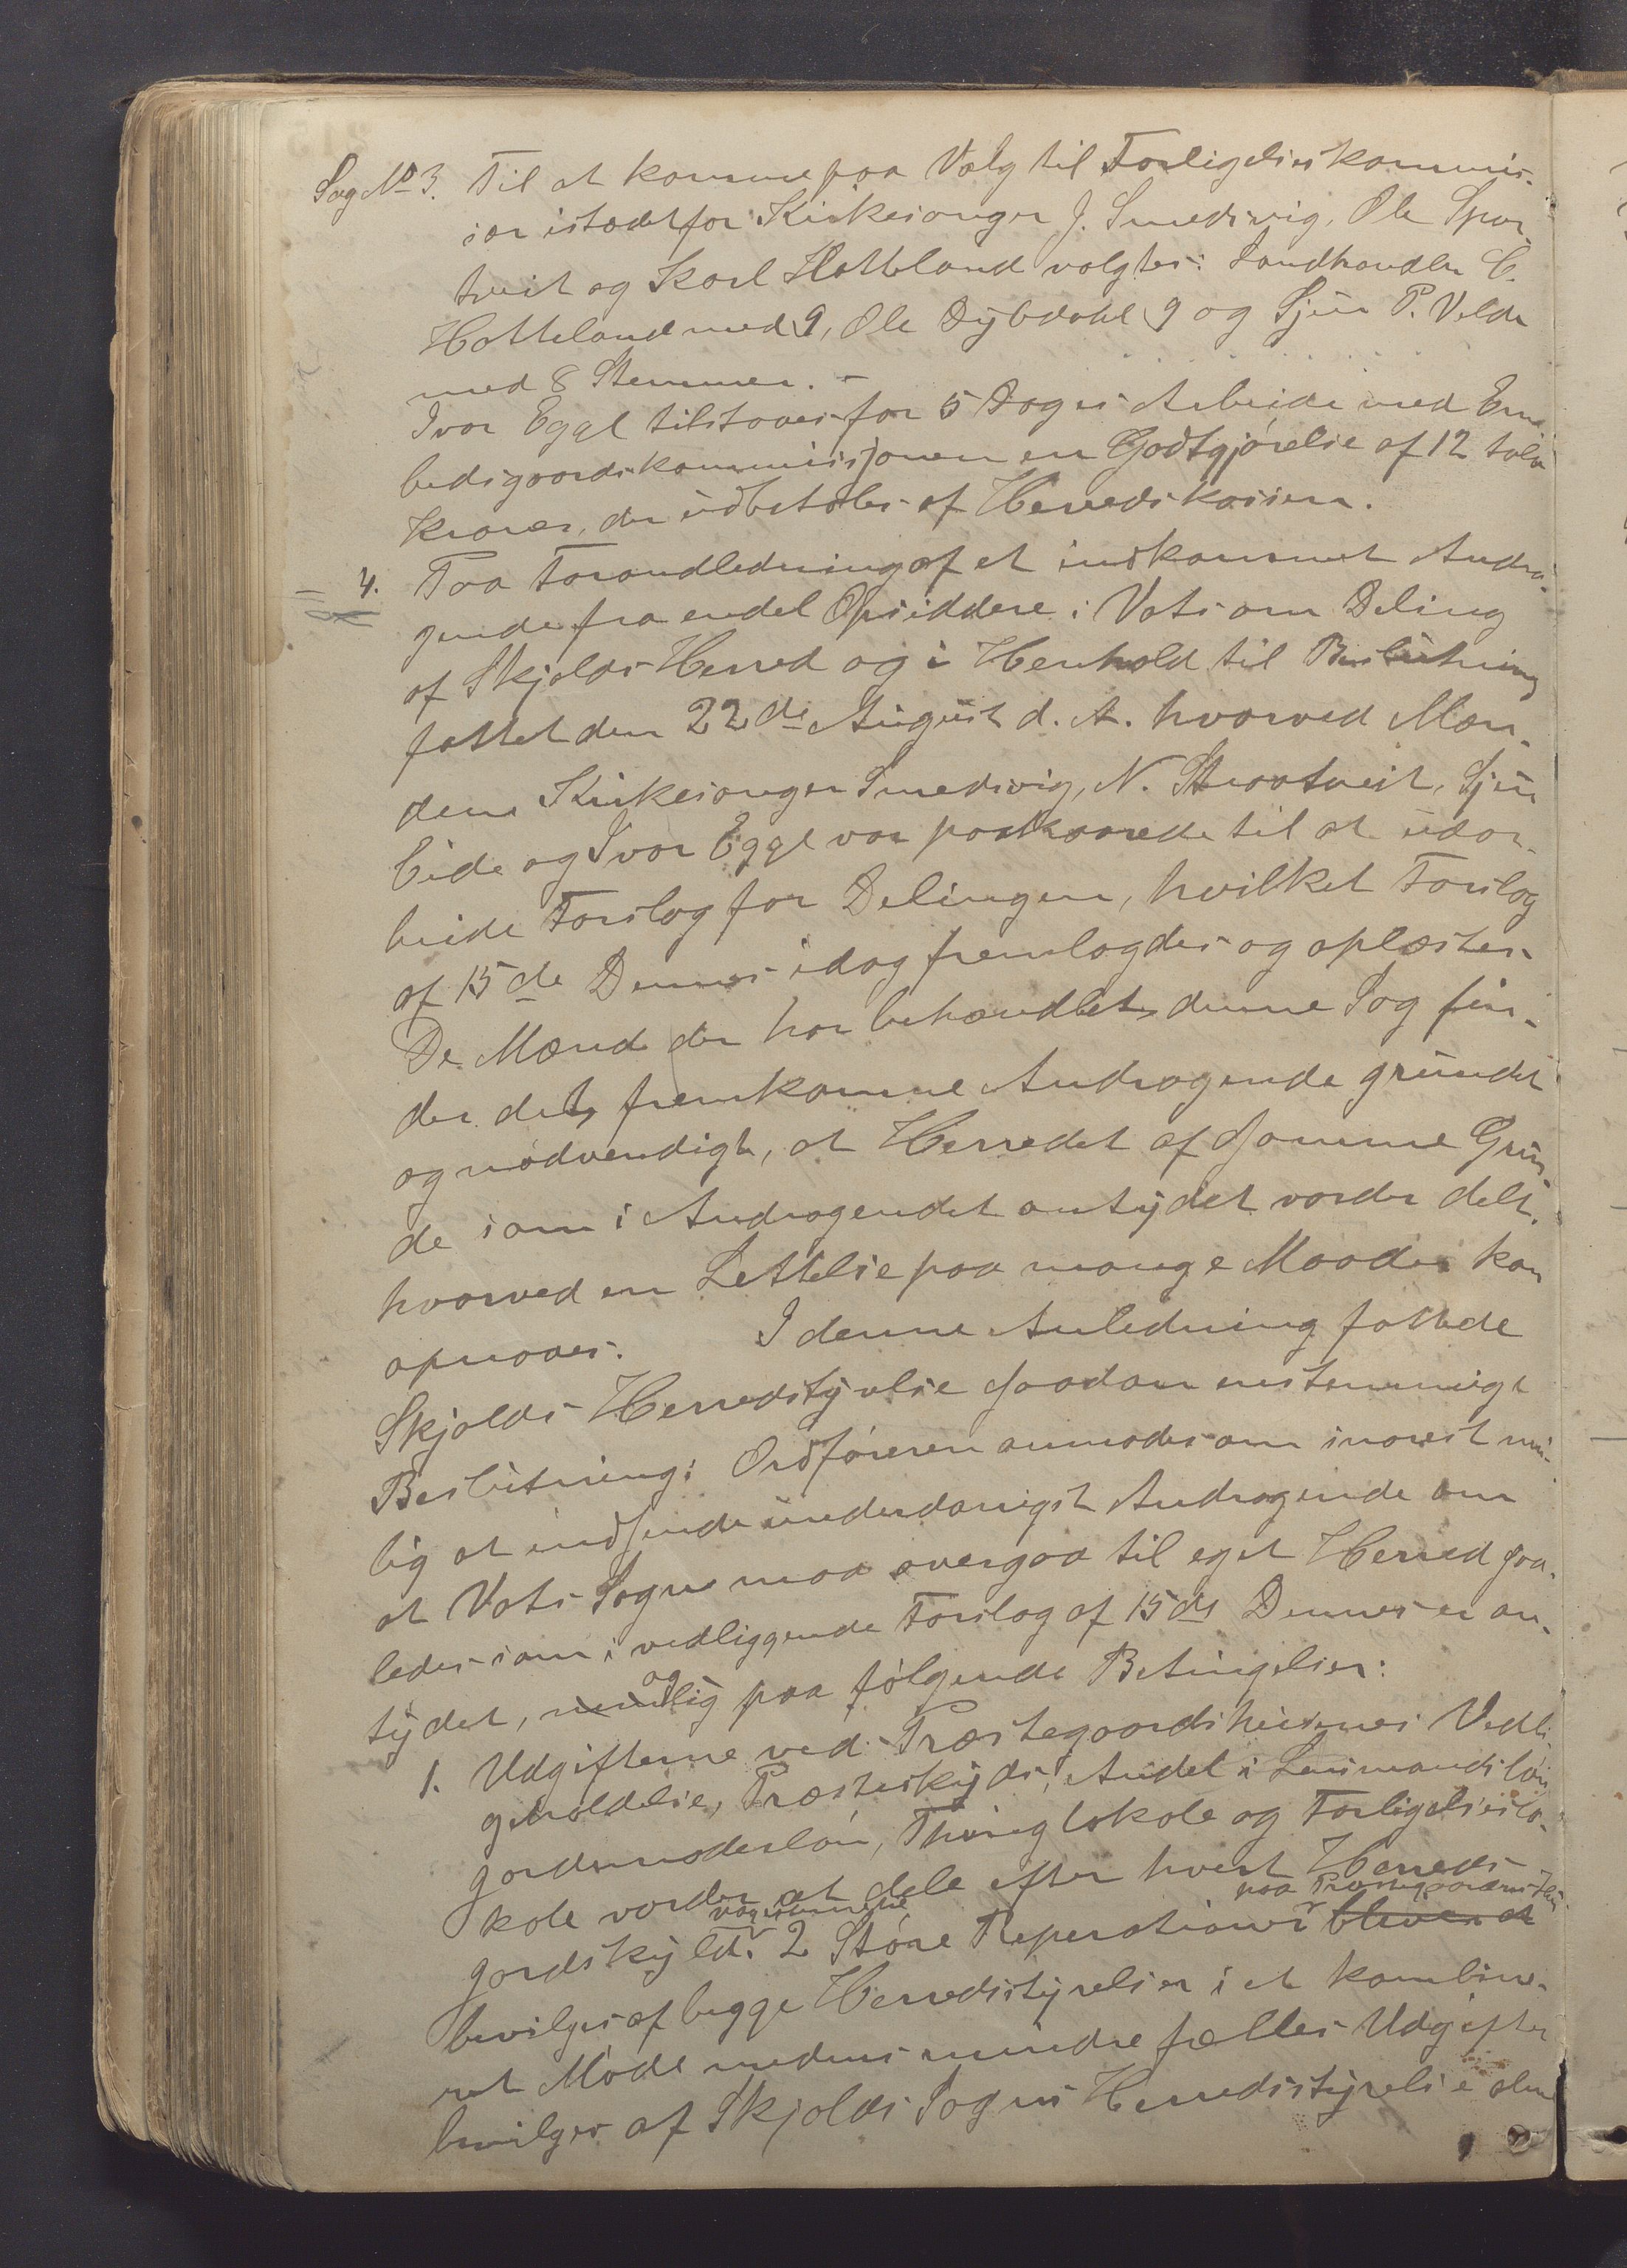 Sag No 3. Til at komme paa Valg til Forligelseskommis-
sær istædetfor Kirkesanger J. Smedsvig, Ole Spor-
tveit og Karl Hatteland valgtes: Landhandler C.
Hatteland med 9, Ole Dybdahl 9 og Sjur P. Velde
med 8 Stemmer. -
Ivar Egge tilstaaes for 5 Dages Arbeide med Em-
bedsgaardskommissjonen en Godtgjørelse af 12 tolv
Kroner, der udbetales af Herredskassen.
4. Paa Foranledning af et indkommet Andra-
gende fra endel Opsiddere i Vats om Deling
af Skjolds Herred og i Henhold til Beslutning
fattet den 22de August d. A. hvorved Mæn-
dene Kirkesanger Smedsvig, N. Straatveit, Sjur
Eide og Ivar Egge var paakaarede til at udar-
beide Forslag for Delingen, hvilket Forslag
af 15de Dennes idag fremlagdes og oplæstes.
De Mænd der har behandlet denne Sag fin-
der det fremkomne Andragende grundet
og nødvendigt, at Herredet af samme Grun-
de som i Andragendet antydet vorder delt,
hvorved en Lettelse paa mange Maader kan
opnaaes. I denne Anledning fattede
Skjolds Herredstyrelse saadan enstemmigt
Beslutning: Ordføreren anmodes om snarest mu-
lig at indsende underdanigst Andragende om
at Vats Sogn maa overgaa til eget Herred saa-
ledes som i vedliggende Forslag af 15de Dennes er an-
tydet, nemlig og paa følgende Betingelser:
1. Udgifterne ved Præstegaardshusenes Vedli-
geholdelse, Præsteskyds, Andel i Lensmandsløn
Jordemoderløn, Thinglokale og Forligelseslo-
kale vorder at dele efter hvert Herreds
vægesummene paa Præstegaardens Hus
Jordskyld. 2 Større Reperationer bliver at
bevilges af begge Herredsstyrelser i et kombine-
ret Møde medens mindre fælles Udgifter
bevilges af Skjolds Sogns Herredsstyrelse alene